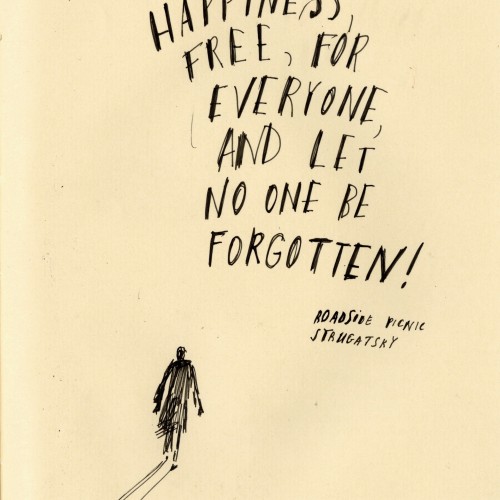 HAPPINESS,
FREE, FOR
EVERYONE,
AND LET
NO ONE BE
FORGOTTEN!
ROADSiDE PICNIC
STRUGATSKY